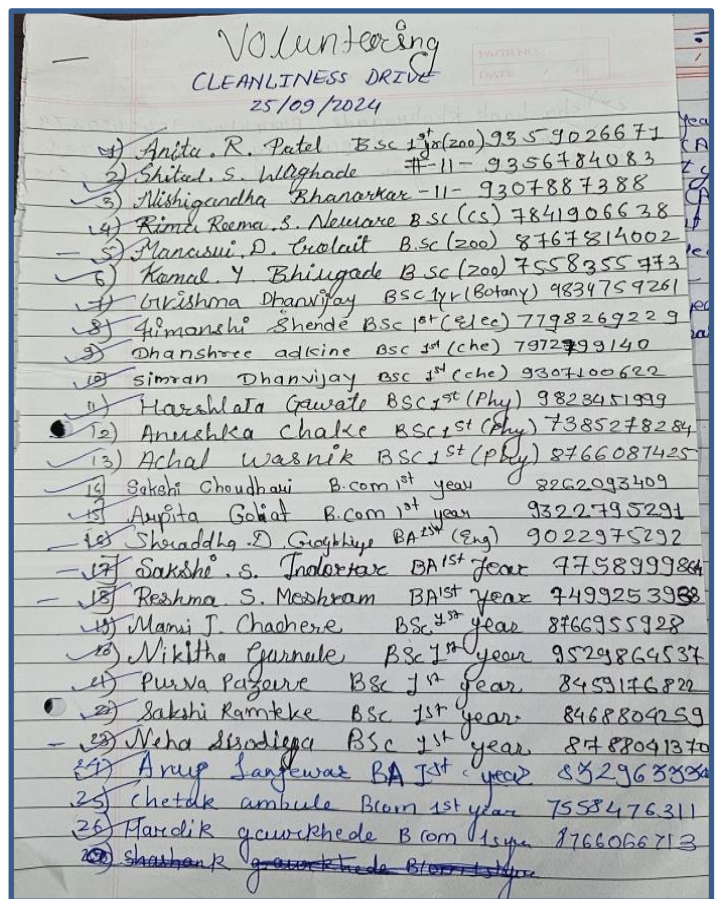 Volunteering
CLEANLINESS DRIVE
25/09/2024
1) Anita . R. Patel BSc 1st yr (zoo) 9359026671
2) Shital. S. Waghade -11- 9356784083
3) Nishigandha Bhanarkar -11- 9307887388
4) Reema. S. Neware B SC (CS) 7841906638
5) D. B.Sc (zoo) 8767814002
6) Komal. Y. Bhiugade B Sc (zoo) 7558355773
7) Grishma Dhanvijay BSC 1yr (Botany) 9834759261
8) Himanshi Shende BSc 1st (Elec) 7798269229
9) Dhanshree adkine BSC 1st (che) 7972799140
10) Simran Dhanvijay BSC 1st (che) 9307100622
11) Harshlata Gawate BSC 1st (Phy) 9823451999
12) Anushka Chake BSC 1st (Phy) 7385278284
13) Achal Wasnik BSC 1st (Phy) 8766087425
14) Sakshi Choudhari B.com 1st year 8262093409
15) Arpita B.com 1st year 9322795291
16) Shraddha .D. BA 1st (Eng) 9022975292
17) Sakshi . S. Indorkar BA 1st Year 7758999864
18) Reshma S. Meshram BA 1st Year 7499253938
19) Mansi J. Chachere BSc 1st year 8766955928
20) Nikitha Gurnule BSc 1st year 9529864537
21) Purva BSc 1st year 8459176822
22) Sakshi Ramteke BSc 1st year. 8468804259
23) Neha Sisodiya BSc 1st year 8788041370
24) Anup Sanjewar BA Ist year
25) Chetak ambule Bcom 1st year 7558476311
26) Hardik gawrkhede B com 1s 8766066713
Shashank